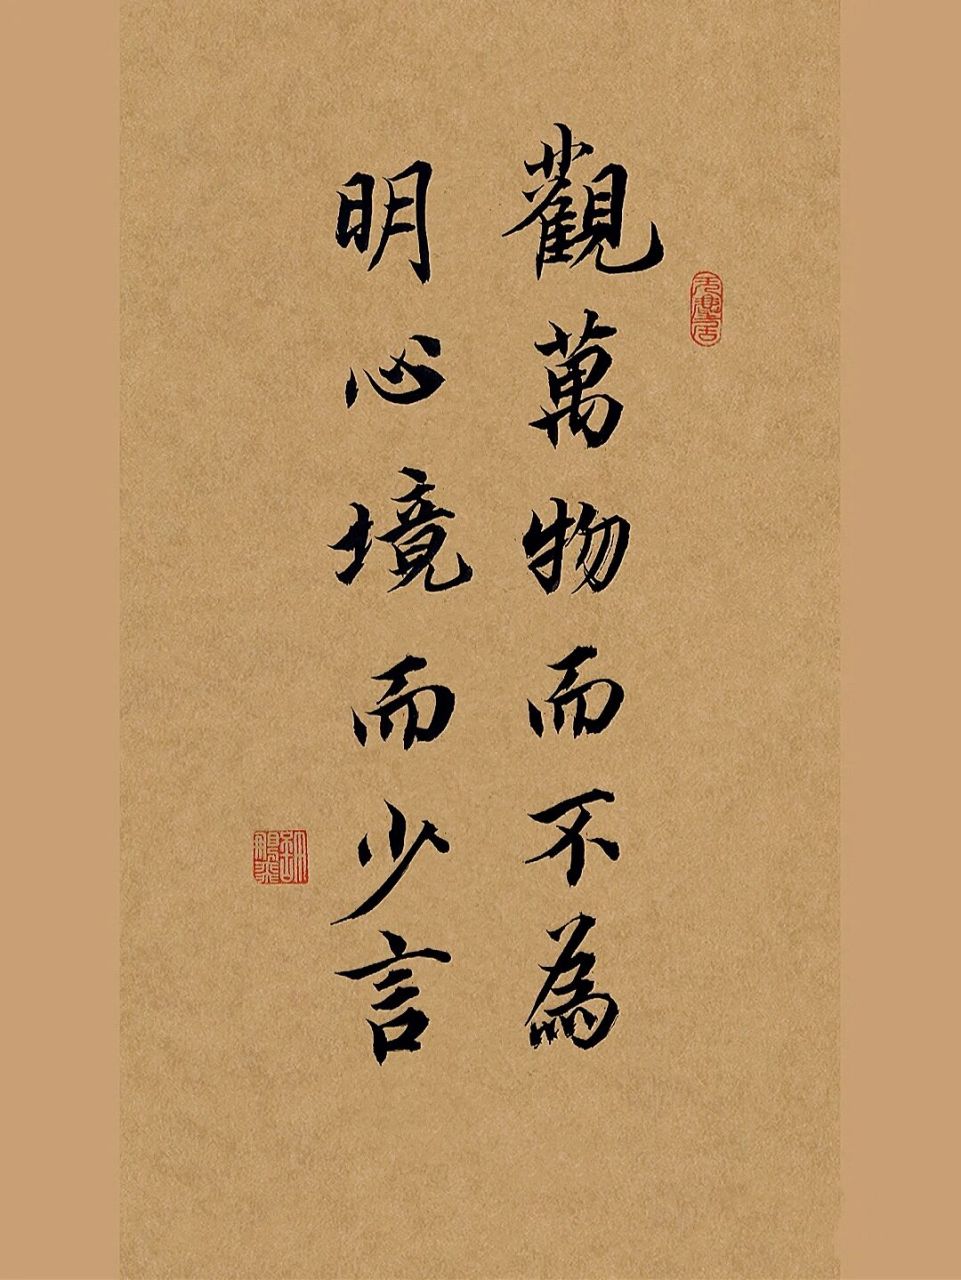 觀萬物而不為
明心境而少言